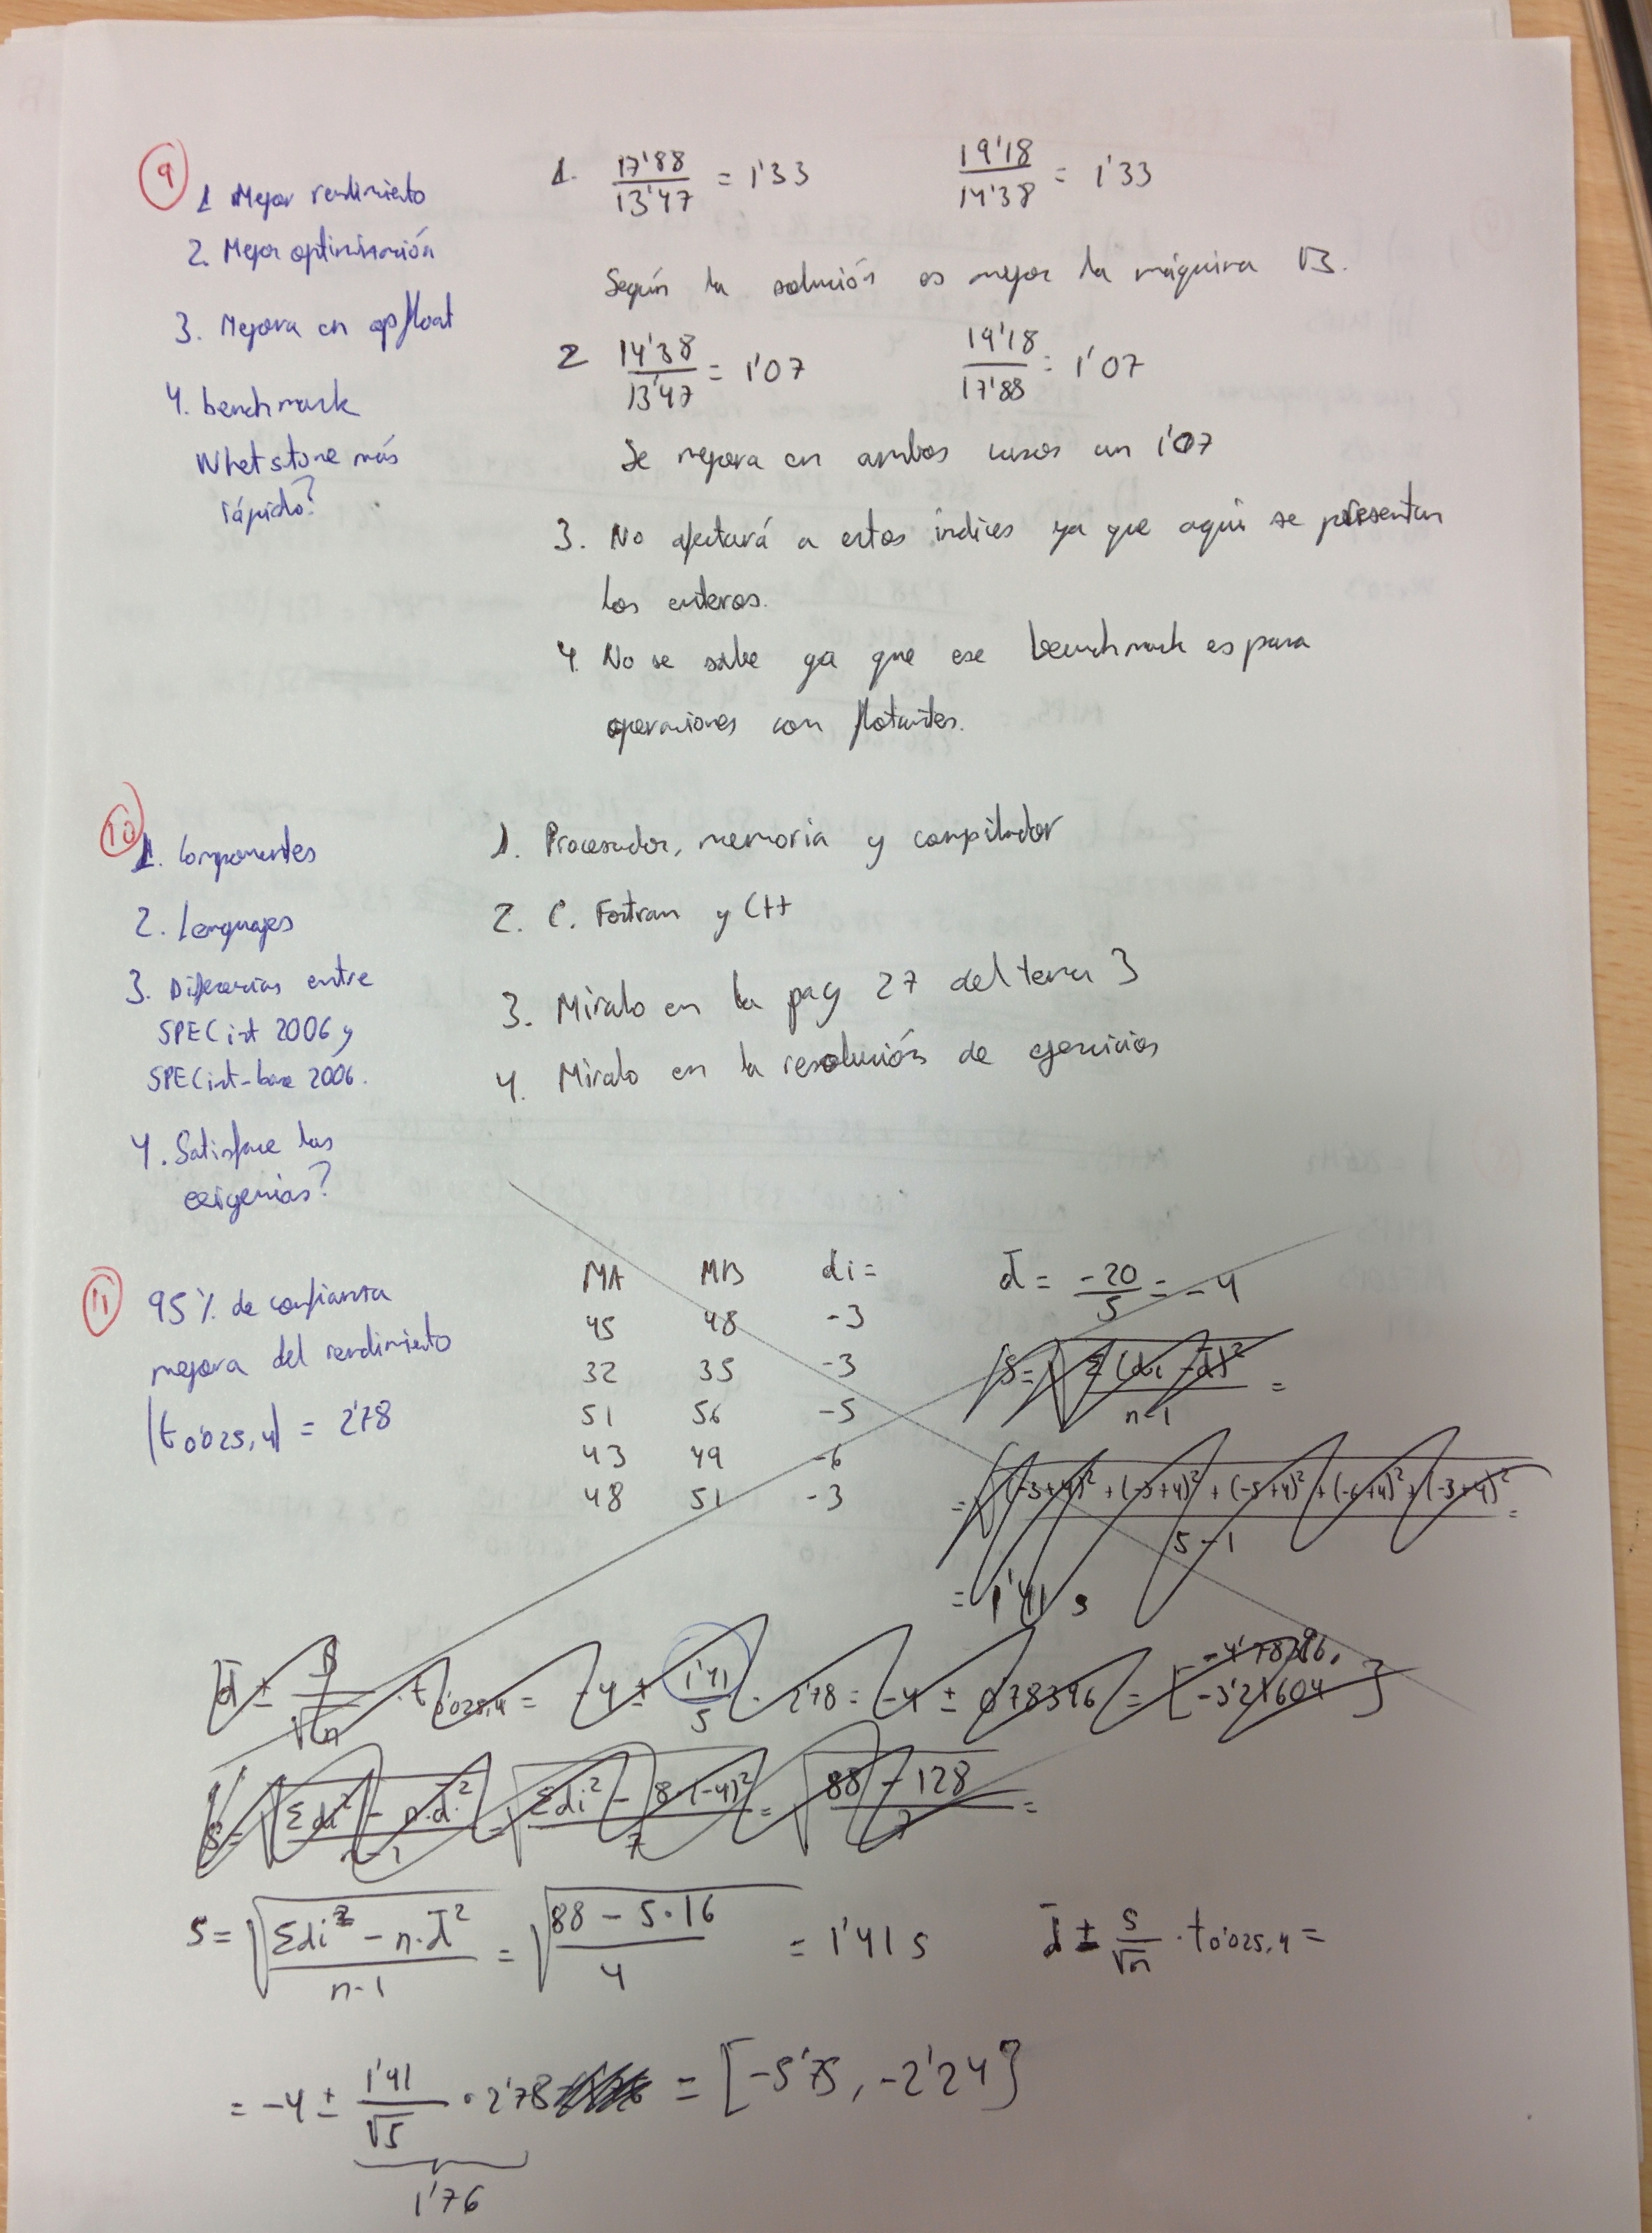 9
1 Mejor rendimiento
2. Mejor optimización
3. Mejora en opfloat
4. benchmark
Whetstone más
rápido?
1. 17'88/13'47 = 1'33   19'18/14'38 = 1'33
Según la solución es mejor la máquina B.
2 14'38/13'47 = 1'07   19'18/17'88 = 1'07
Se mejora en ambos casos un 1'07
3. No afectará a estos índices ya que aqui se presentan
los enteros.
4. No se sabe ya que ese benchmark es para
operaciones con flotantes.
10
1. Componentes
2. Lenguajes
3. Diferencias entre
SPECint 2006 y
SPECint-base 2006.
4. Satisface las
exigencias?
1. Procesador, memoria y compilador
2. C. Fortran y C++
3. Miralo en la pag 27 del tema 3
4. Miralo en la resolución de ejercicios
11
95% de confianza
mejora del rendimiento
|t0'025,4| = 2'78
MA MB di=
45 48 -3
32 35 -3
51 56 -5
43 49 -6
48 51 -3
d̄ = -20/5 = -4
S = √(Σ(di - d̄)²/(n-1)) =
= √(((-3+4)² + (-3+4)² + (-5+4)² + (-6+4)² + (-3+4)²)/(5-1)) =
= 1'41 s
d̄ ± s/√n · t0'025,4 = -4 ± 1'41/5 · 2'78 = -4 ± 0'78396 = [-4'78396, -3'21604]
S = √((Σdi² - n·d̄²)/(n-1)) = √((Σdi² - 8·(-4)²)/7) = √((88 - 128)/7) =
S = √((Σdi² - n·d̄²)/(n-1)) = √((88 - 5·16)/4) = 1'41 s   d̄ ± s/√n · t0'025,4 =
= -4 ± 1'41/√5 · 2'78 = [-5'75, -2'24]
1'76